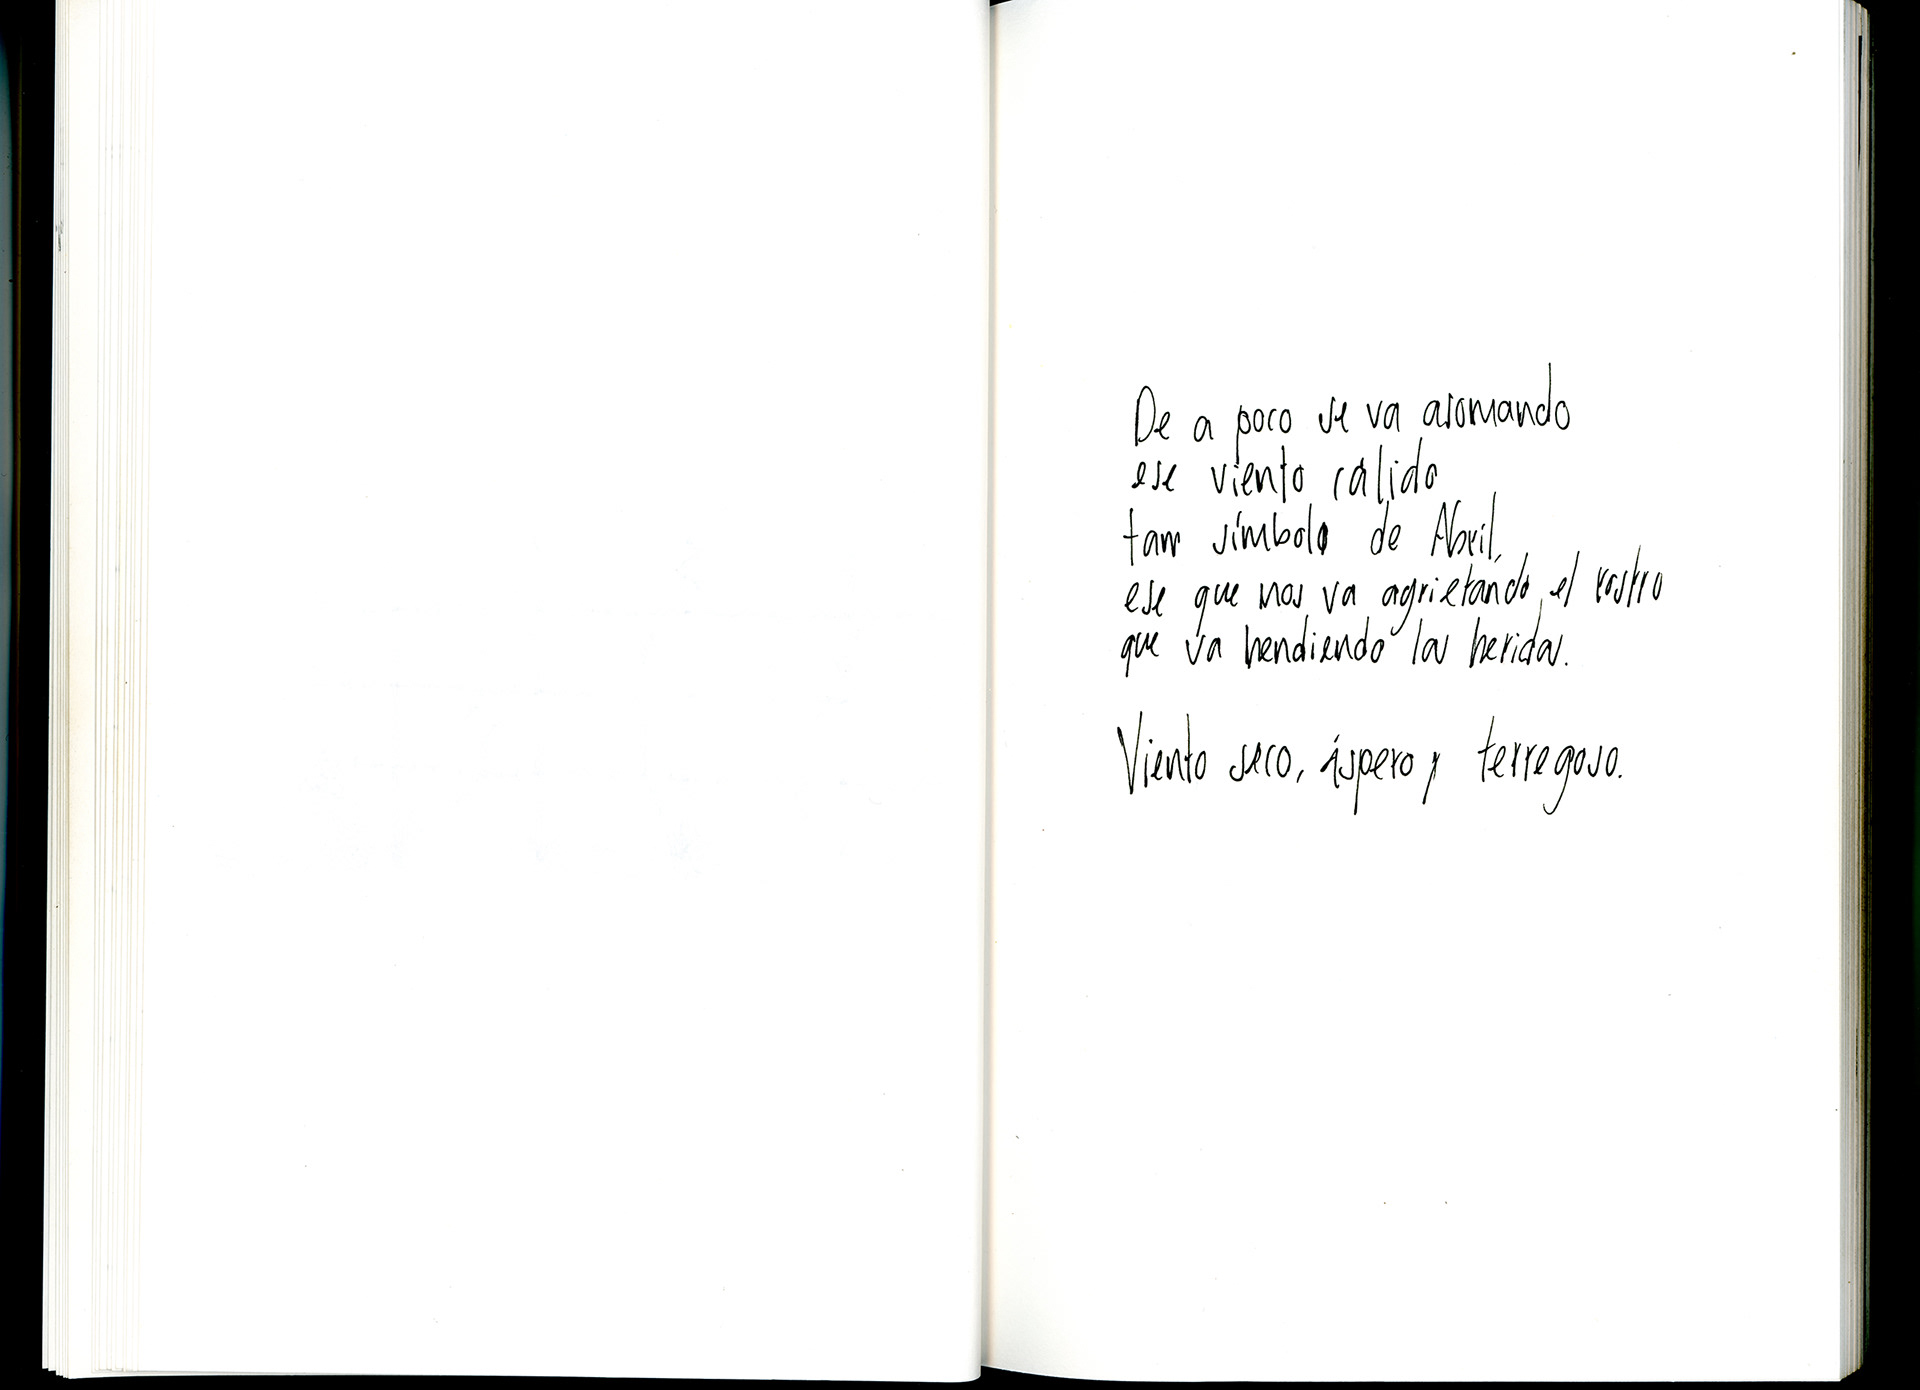 De a poco se va asomando
ese viento cálido
tan símbolo de Abril,
ese que nos va agrietando el rostro
que va hendiendo la herida.
Viento seco, áspero y terregoso.